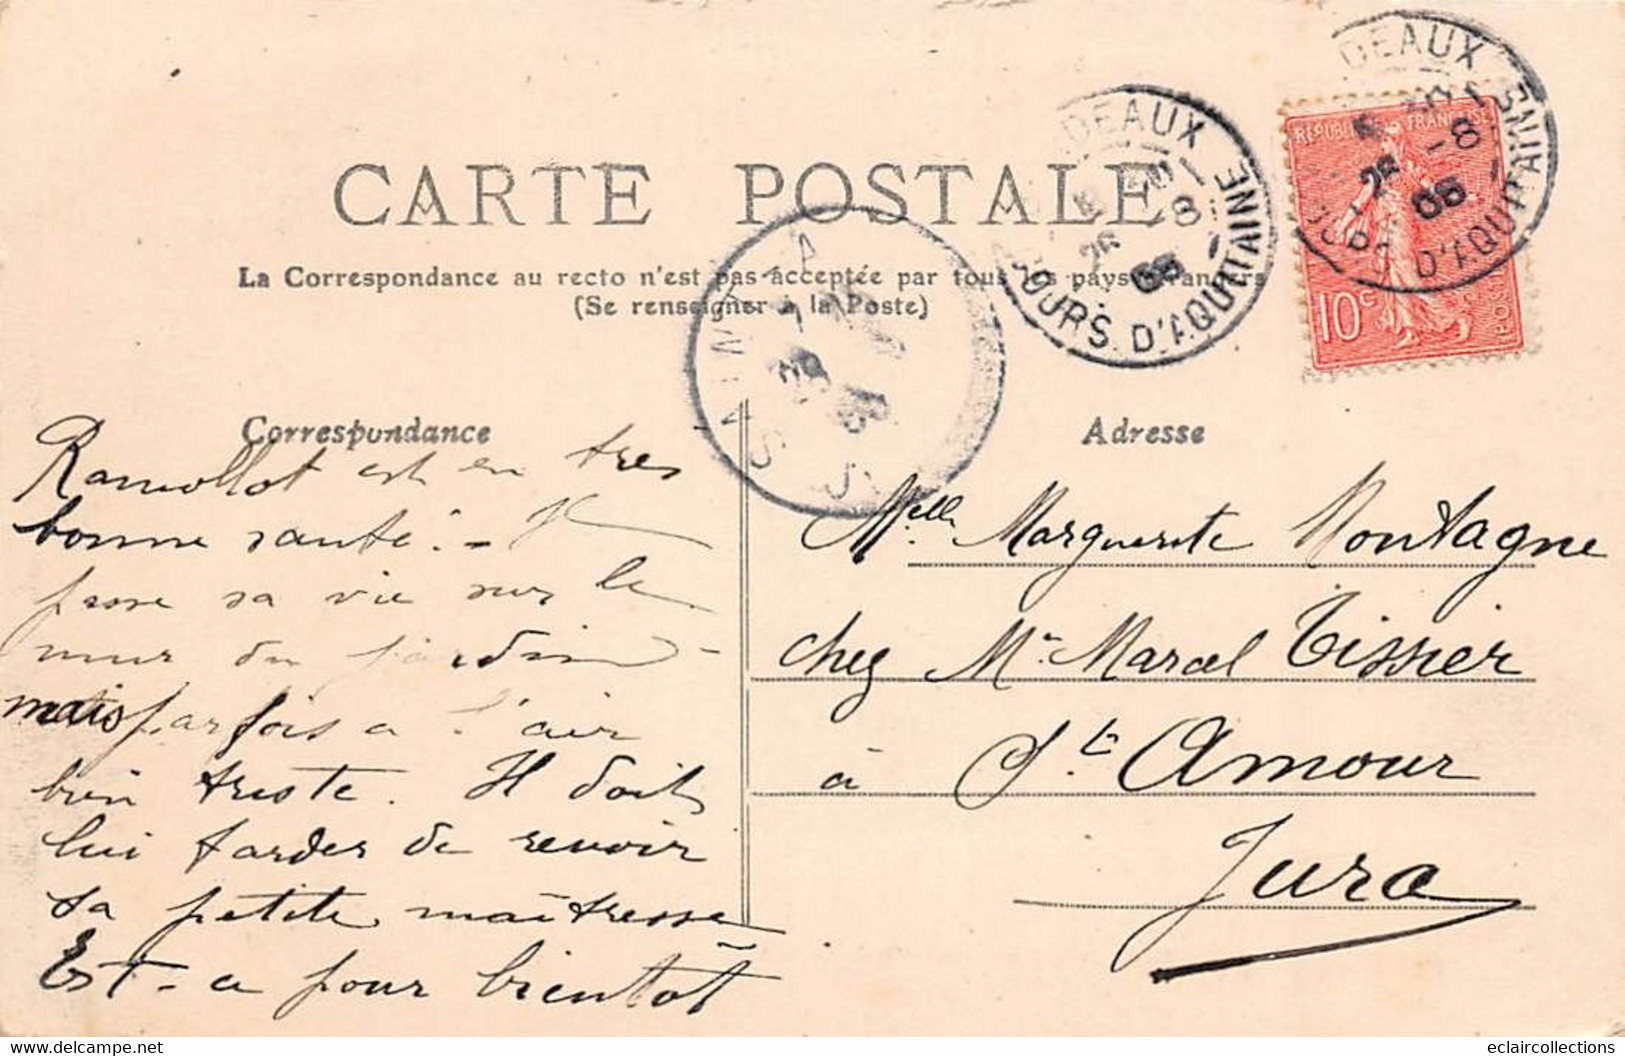 CARTE POSTALE
La Correspondance au recto n'est pas acceptée par tous les pays étrangers
(Se renseigner à la Poste)
DEAUX
COURS D'AQUITAINE
8
DEAUX
COURS D'AQUITAINE
25 -8
REPUBLIQUE FRANÇAISE
10c
POSTES
SAINT A
Correspondance
Ramollot est en tres
bonne santé. - Il
passe sa vie sur le
mur du jardin -
mais parfois a l'air
bien triste. Il doit
lui tarder de revoir
sa petite maîtresse
Est-ce pour bientôt
Adresse
Melle Marguerite Montagne
chez Mr Marcel Tissier
à St Amour
Jura
www.delcampe.net
eclaircollections